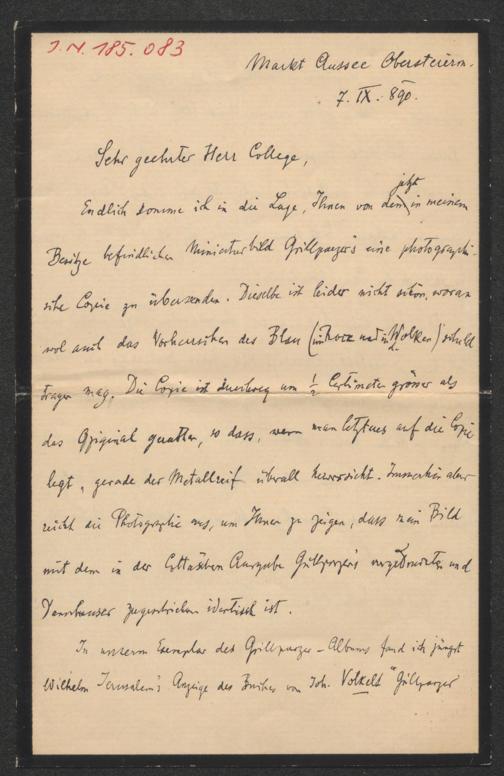 J.N. 185.083
Markt Aussee Obersteierm.
7. IX. 890.
Sehr geehrter Herr College,
jetzt
Endlich komme ich in die Lage, Ihnen von dem in meinem
Besitze befindlichen Miniaturbild Grillparzer's eine photographi-
sche Copie zu übersenden. Dieselbe ist leider nicht schön, woran
wol auch das Vorherrschen des Blau (im Rock und in Wolken) schuld
tragen mag. Die Copie ist durchweg um ½ Centimeter grösser als
das Original gerathen, so dass, wenn man letzteres auf die Copie
legt, gerade der Metallreif überall hervorsieht. Immerhin aber
reicht die Photographie aus, um Ihnen zu zeigen, dass mein Bild
mit dem in der Cotta'schen Ausgabe Grillparzer's und
Danhauser zugeschrieben identisch ist.
In unserem Exemplar des Grillparzer-Albums fand ich jüngst
Wilhelm Jerusalem's Anzeige des Buches von Joh. Volkelt "Grillparzer